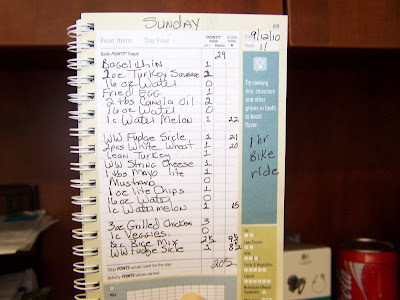 SUNDAY
69
Food Items Day Four POINTS® Value
Date 9/12/10
Daily POINTS® Target 29
Bagel thin 1
2oz Turkey Sausage 1
16 oz Water 0
Fried Egg 1
2 tbs Canola Oil 2
16 oz Water 0
1c Water Melon 1 22
WW Fudge Sicle 1 21
2pcs White Wheat 1 20
Lean Turkey 1
WW String Cheese 1
1 tbs Mayo lite 1
Mustard 0
1 oz lite Chips 1
16 oz Water 0
1c Watermelon 1 15
3oz Grilled Chicken 3
1c Veggies 0
Rice Mix
WW Fudge Sicle 1
Total POINTS values used for the day 20.5
Activity POINTS values earned
Try cooking
rice, couscous
and other
grains in broth
to boost
flavor.
1 hr
Bike
ride